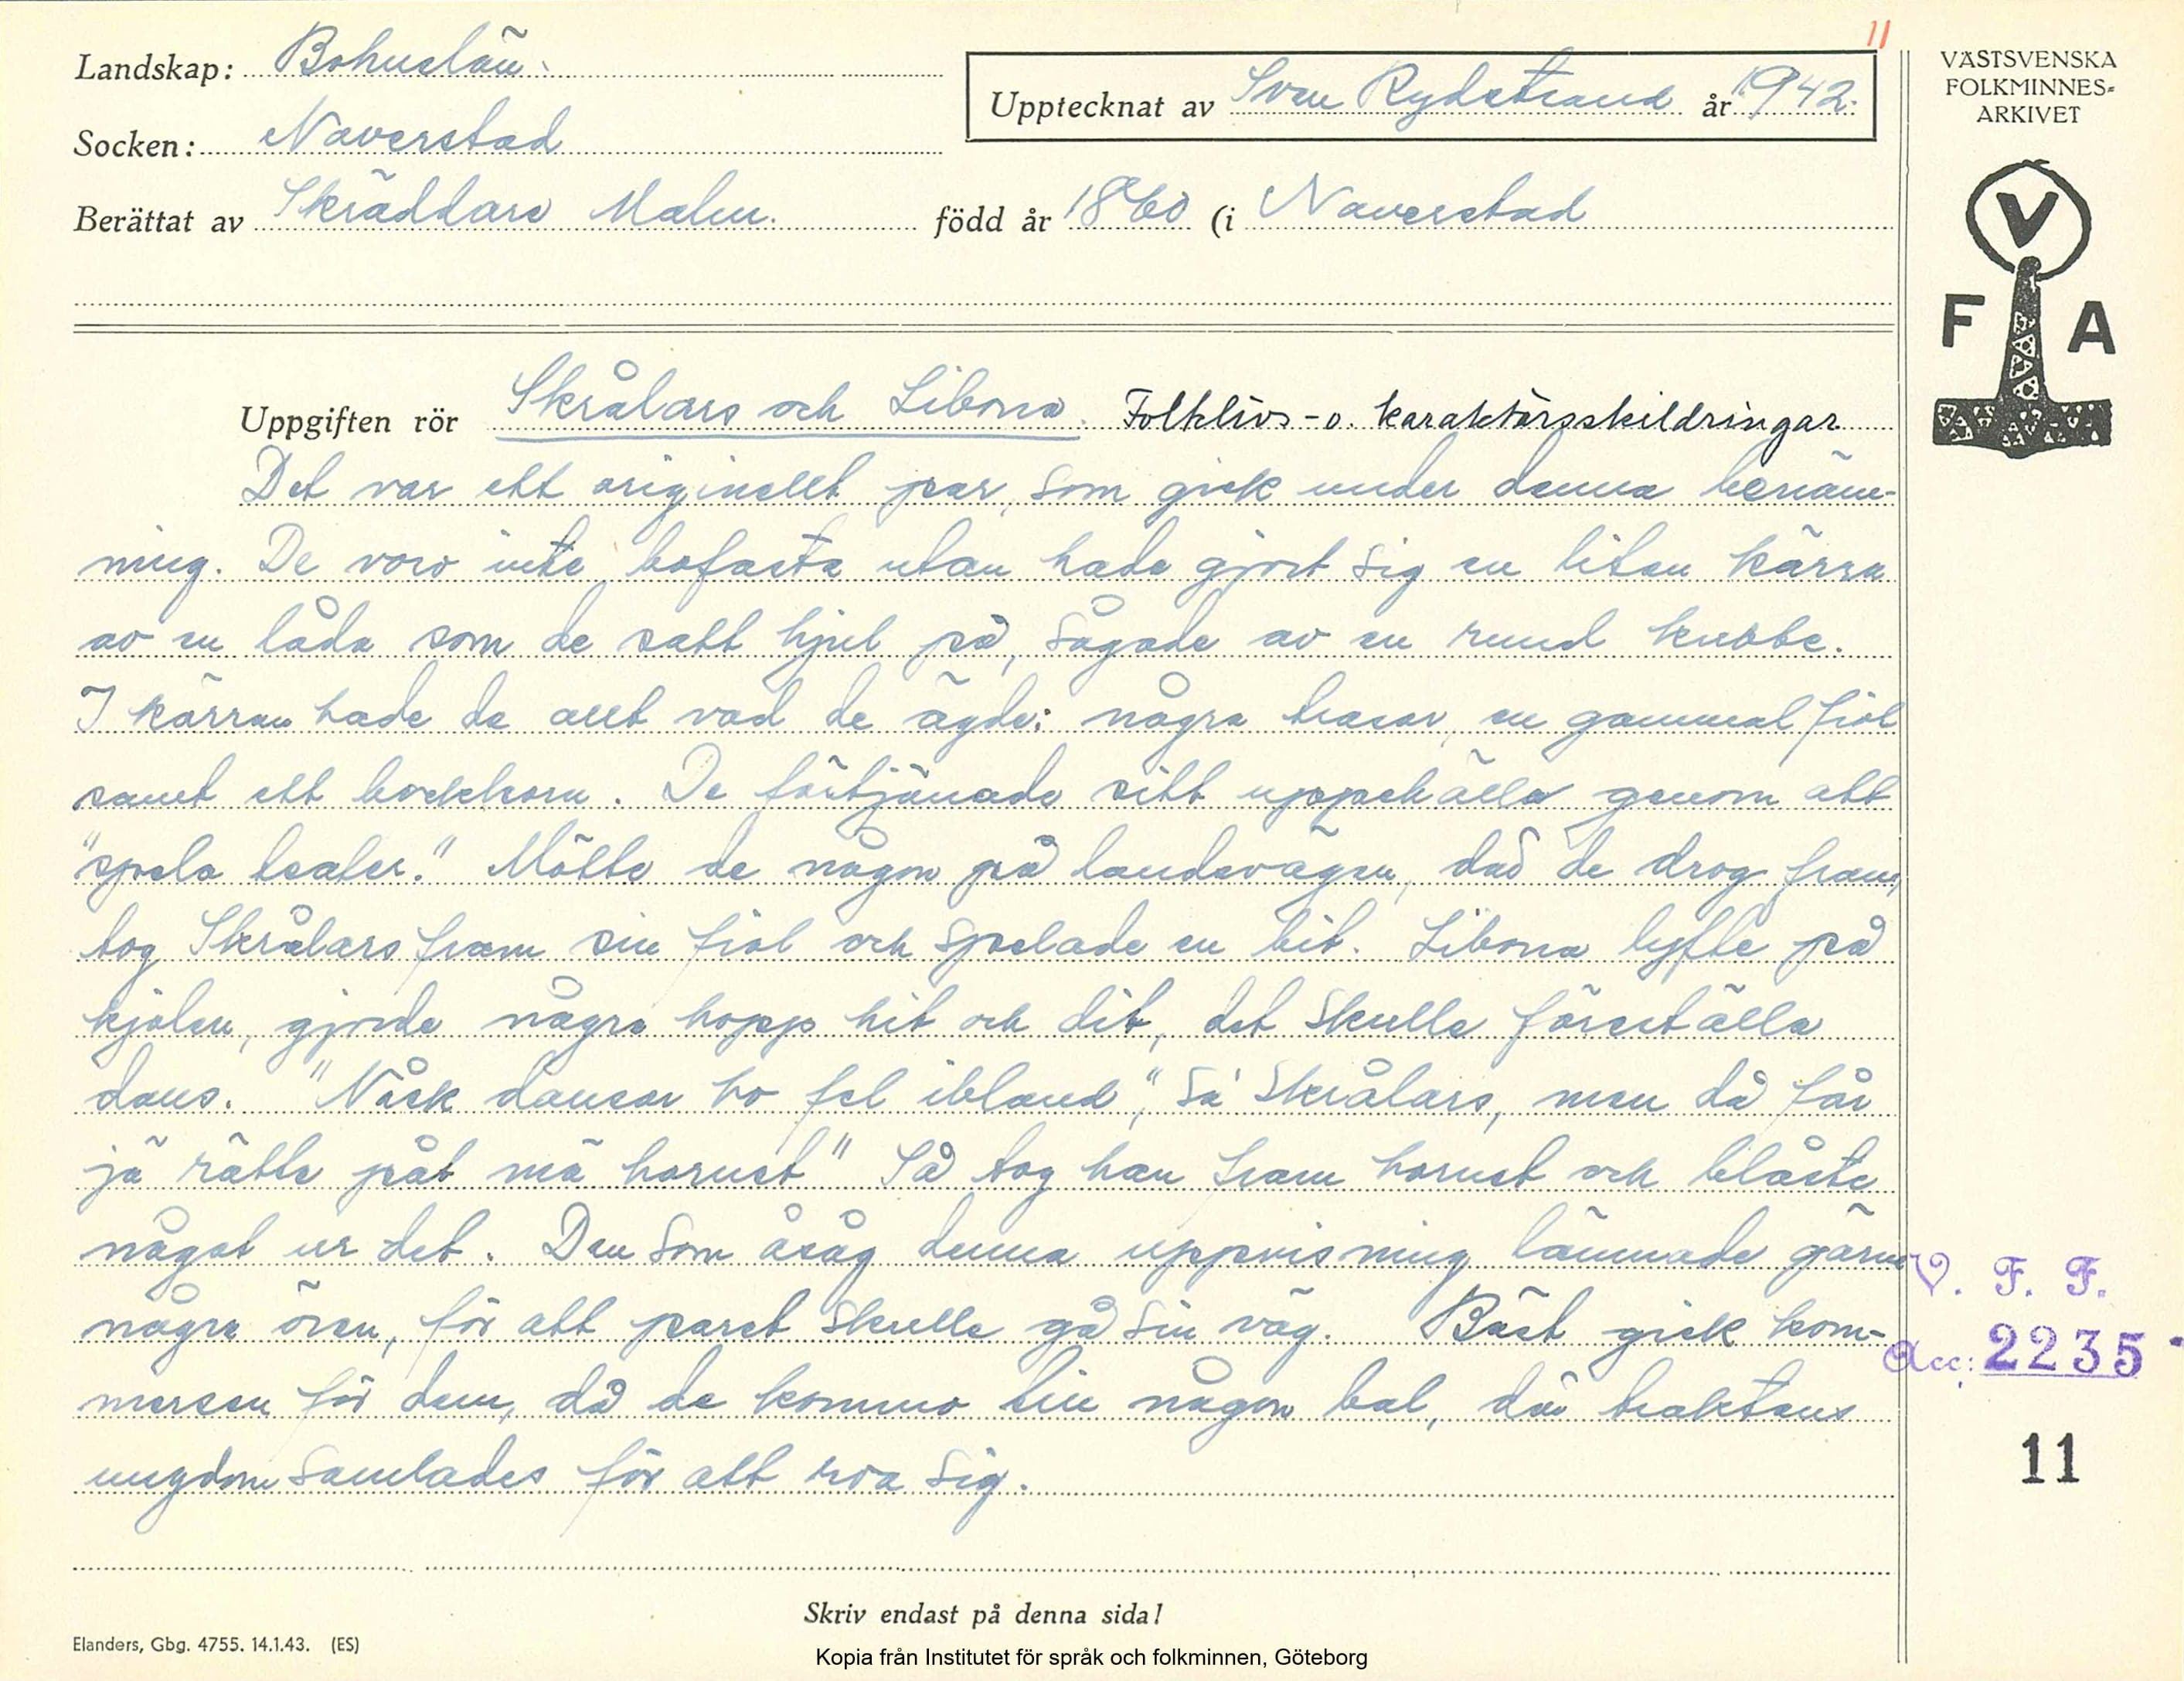 11
Landskap: Bohuslän.
VÄSTSVENSKA
FOLKMINNES-
ARKIVET
Upptecknat av Sven Rydstrand år 1942.
Socken: Naverstad
Berättat av Skräddare Malm. född år 1860 (i Naverstad
V
F A
Uppgiften rör Skrålars och Libona. Folklivs- o. karaktärsskildringar
Det var ett originellt par, som gick under denna benäm-
ning. De voro inte bofasta utan hade gjort sig en liten kärra
av en låda som de satt hjul på, sågade av en rund kubbe.
I kärran hade de allt vad de ägde: några trasor, en gammal fiol
samt ett bockhorn. De förtjänade sitt uppehälle genom att
"spela teater." Mötte de någon på landsvägen, där de drog fram,
tog Skrålars fram sin fiol och spelade en bit. Libona lyfte på
kjolen, gjorde några hopp hit och dit, det skulle föreställa
dans. "Nåsk dansar ho fel ibland", sa' Skrålars, men då får
jä rätte påt mä hornet" Så tog han fram hornet och blåste
något ur det. Den som åsåg denna uppvisning lämnade gärna
några ören, för att paret skulle gå sin väg. Bäst gick kom-
mersen för dem, då de kommo till någon bal, där traktens
ungdom samlades för att roa sig.
V. F. F.
Acc: 2235
11
Skriv endast på denna sida!
Elanders, Gbg. 4755. 14.1.43. (ES)
Kopia från Institutet för språk och folkminnen, Göteborg